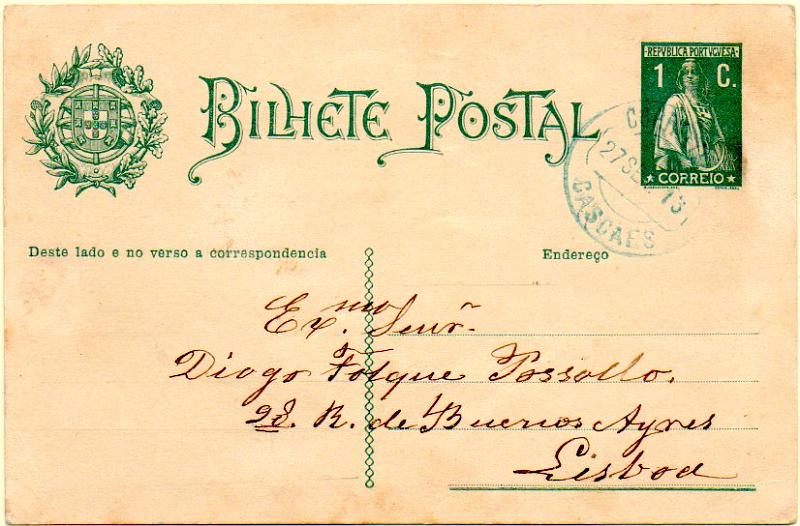 BILHETE POSTAL
REPVBLICA PORTVGVESA
1 C.
CORREIO
27 SET 13
CASCAES
Deste lado e no verso a correspondencia
Endereço
Ex.mo Senr.
Diogo Folque Possollo.
28. R. de Buenos Ayres
Lisboa